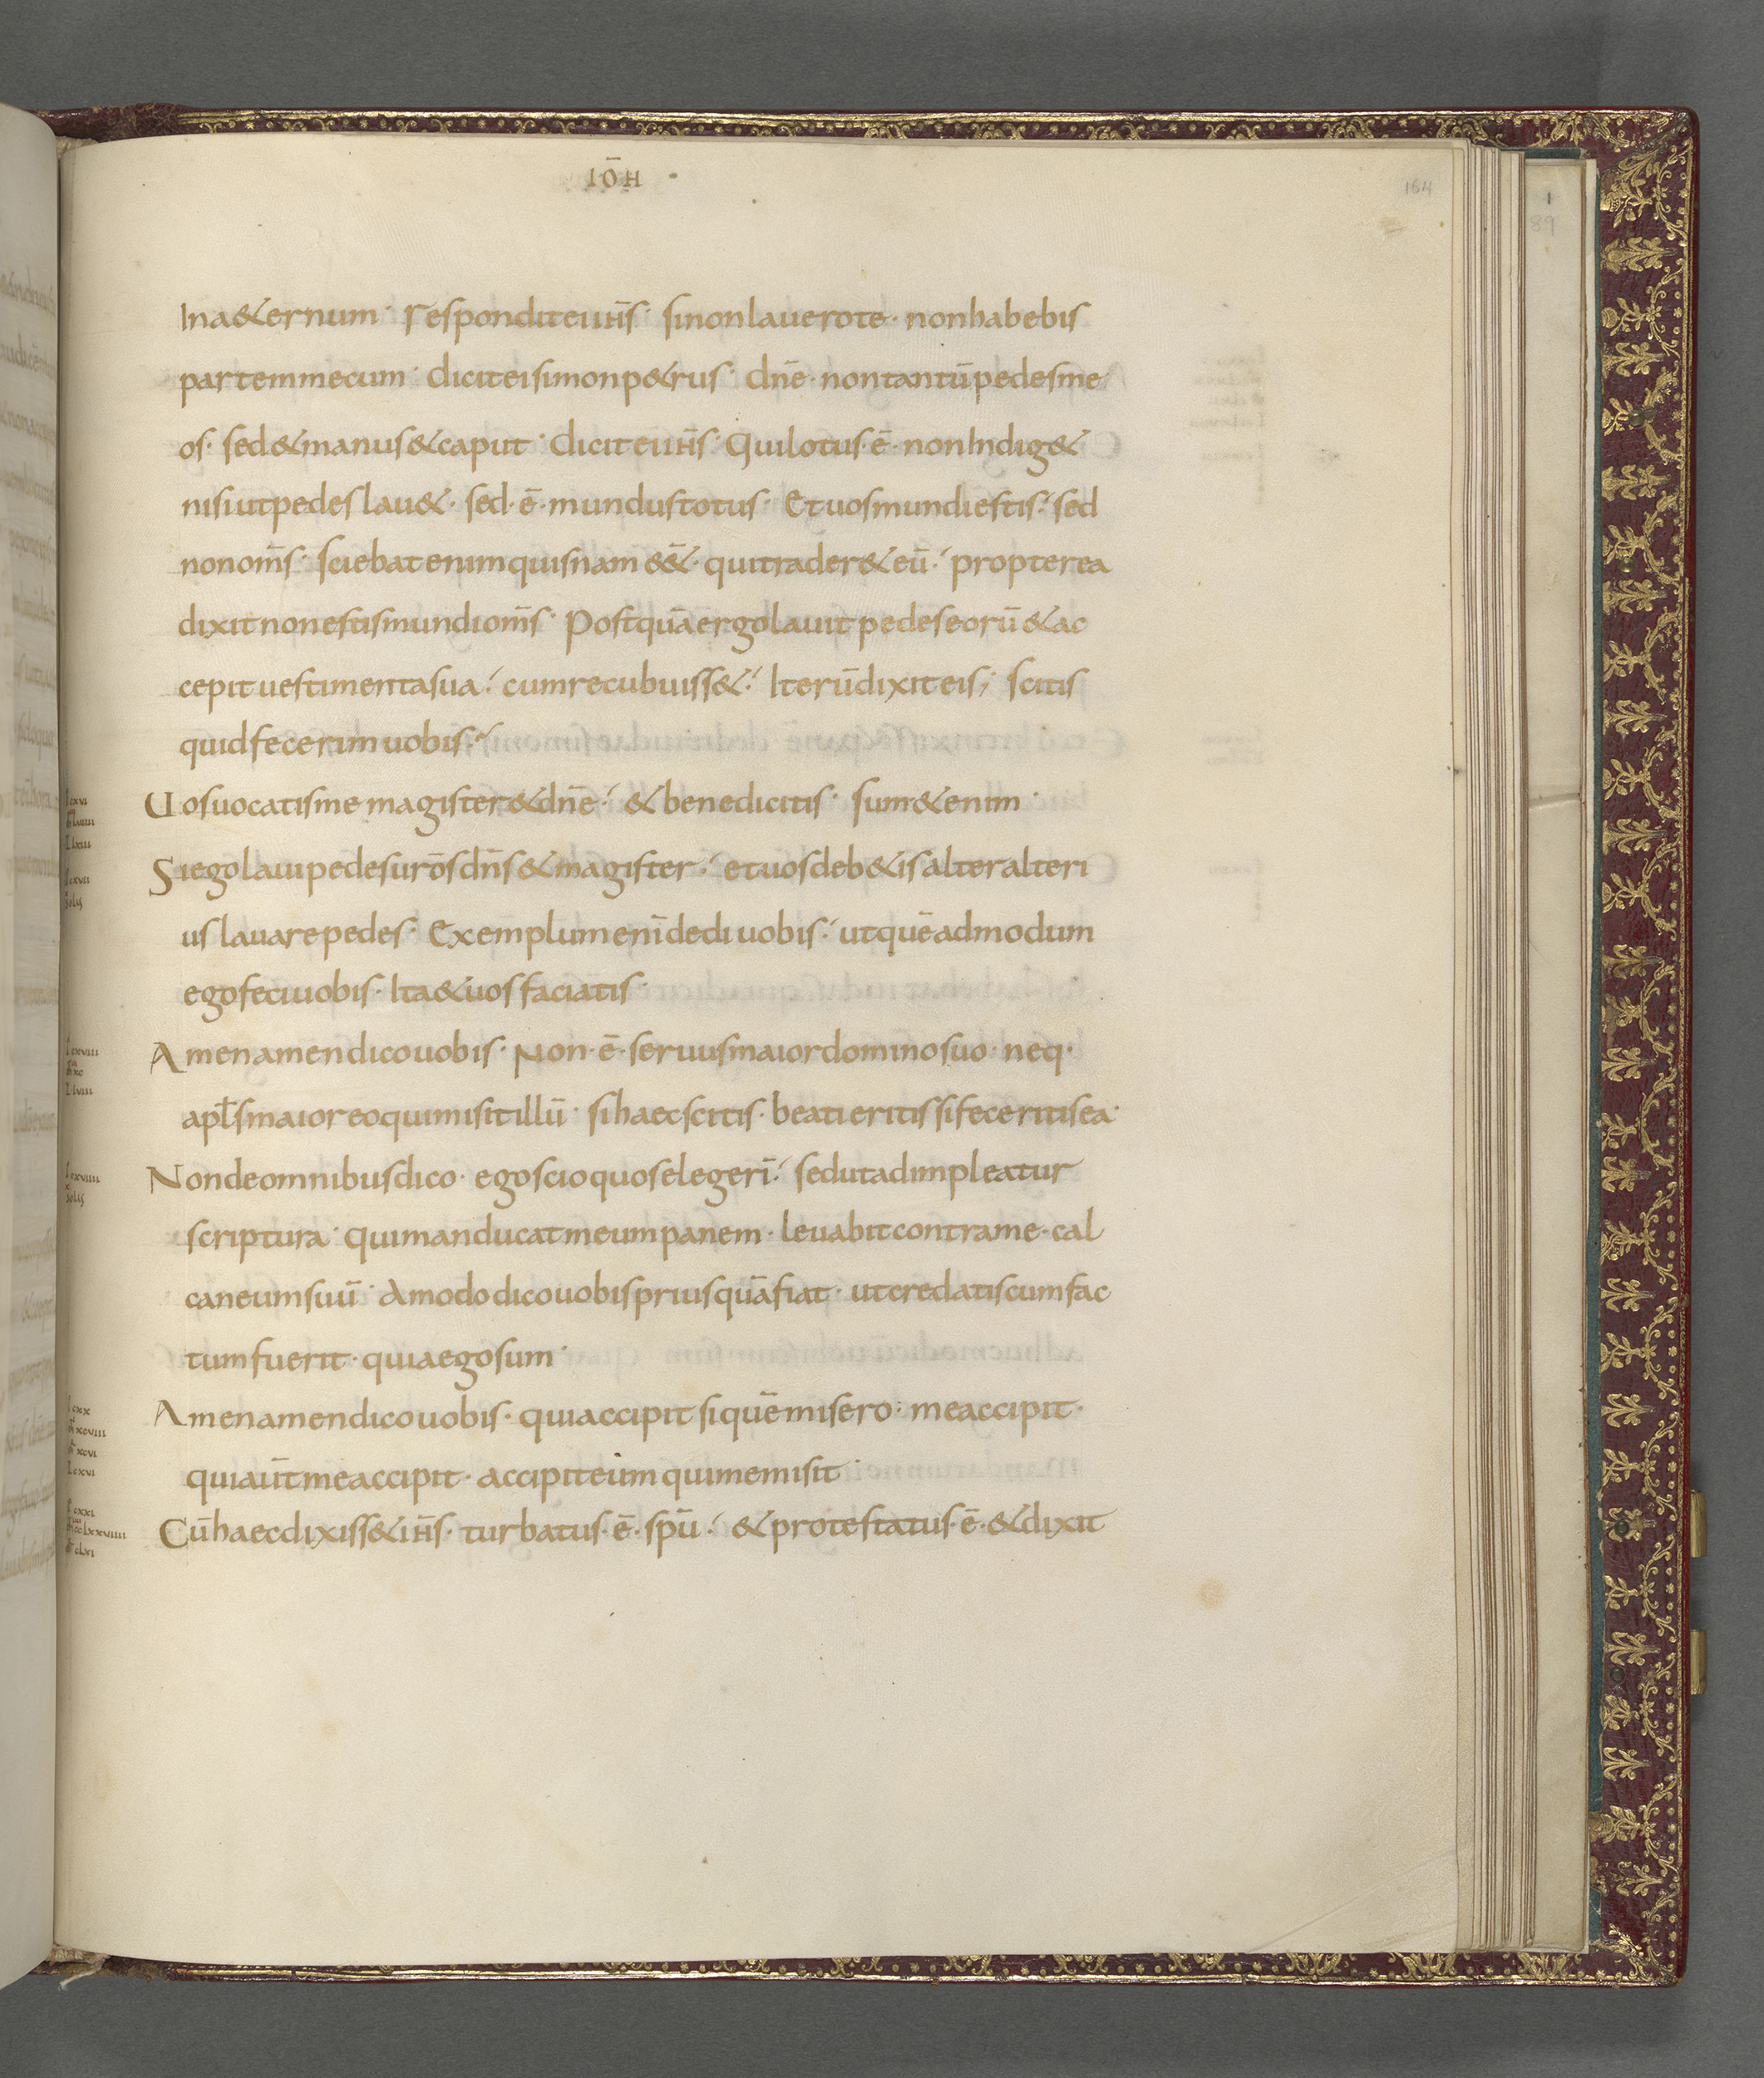 IōH
164
1
89
Ina&ernum· respondit ei ihs̄· si non lauero te· non habebis
partem mecum· dicit ei simon p&rus· dnē· non tantū pedes me
os· sed & manus & caput· dicit ei ihs̄· Qui lotus· ē· non Indig&
nisi ut pedes lau&· sed· ē· mundus totus· Et uos mundi estis· sed
non om̄s· sciebat enim quisnam e&̄· qui trader& eū· propterea
dixit non estis mundi om̄s· Postquā ergo lauit pedes eorū & ac
cepit uestimenta sua· cum recubuiss&· Iterū dixit eis; scitis
quid fecerim uobis·
Uos uocatis me magister & dnē· & bene dicitis· sum & enim·
Si ego laui pedes urōs dn̄s & magister· et uos deb&is alter alteri
us lauare pedes· Exemplum enī dedi uobis· ut quē ad modum
ego feci uobis· Ita & uos faciatis·
Amen amen dico uobis· Non· ē· seruus maior domino suo· neq·
apl̄s maior eo qui misit illū· si haec scitis· beati eritis si feceritis ea·
Non de omnibus dico· ego scio quos elegerī· sed ut adimpleatur
scriptura· qui manducat meum panem· leuabit contra me· cal
caneum suū· Amodo dico uobis prius quā fiat· ut credatis cum fac
tum fuerit· quia ego sum·
Amen amen dico uobis· qui accipit si quē misero· me accipit·
qui aūt me accipit· accipit eum qui me misit·
Cū haec dixiss& ihs̄· turbatus· ē· spū· & protestatus· ē· & dixit